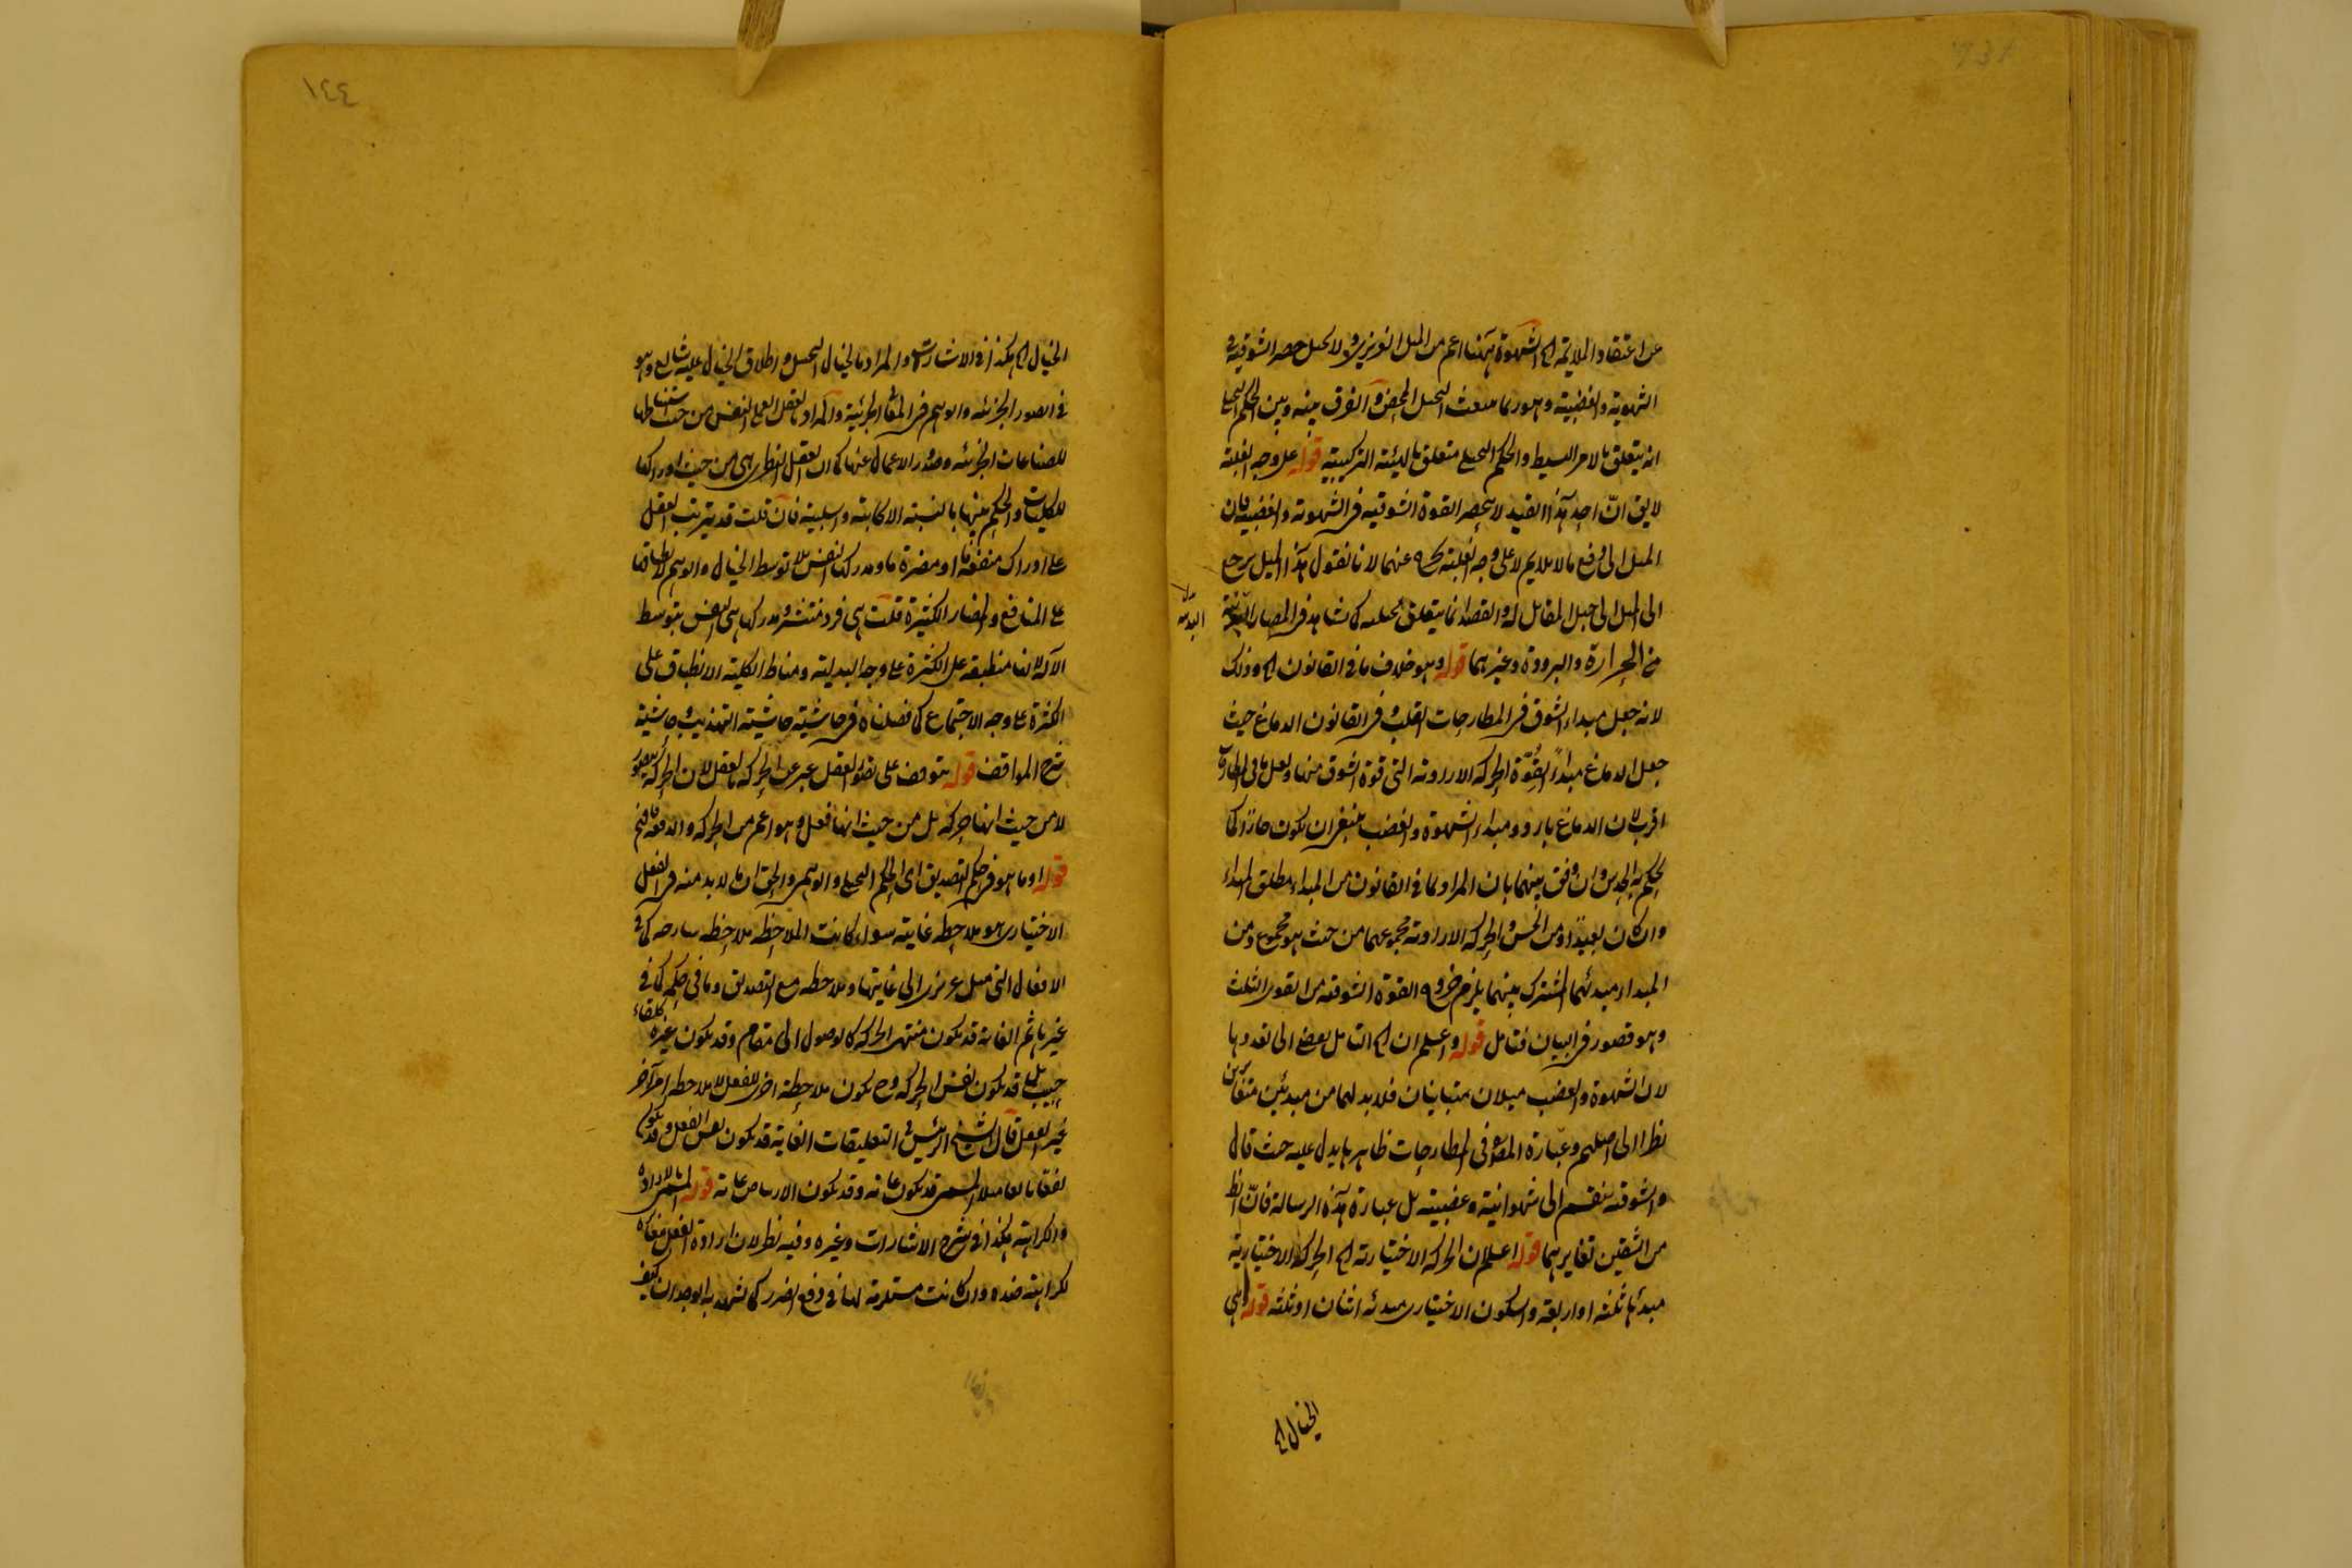 عن اعتقاد الملايمة الخ الشهوة ههنا اعم من الميل الغريزى ولا لحصر الشوقية فى
الشهوية والغضبية وهو ربما ينبعث التخيل المحض والفرق بينه وبين الحكم التخيلى
انه يتعلق بالامر البسيط والحكم التخيلى متعلق بالهيئة التركيبية قوله على وجه الغلبة
لايق ان اخذ هذا القيد لا ينحصر القوة الشوقية فى الشهوية والغضبية فان
الميل الى دفع مالا يلايم لا على وجه الغلبة يخرج عنهما لانا نقول هذا الميل يرجع
الى الميل الى المقابل له والقصد انما يتعلق كما نشاهد فى المضار البدنية
البدنية
من الحرارة والبرودة وغيرهما قوله وهو خلاف ما فى القانون الخ وذلك
لانه جعل مبداء الشوق فى المطارحات القلب وفى القانون الدماغ حيث
جعل الدماغ مبداء لقوة الحركة الارادية التى قوة الشوق منها ولعل ما فى المطارحات
اقرب لان الدماغ بارد ومبداء الشهوة والغضب ينبغى ان يكون حارا كما
يحكم به الحدس وان وفق بينهما بان المراد بما فى القانون من المبداء مطلق المبداء
وان كان بعيدا ومن الحس والحركة الارادية مجموعهما من حيث هو مجموع ومن
المبداء مبدئهما المشترك بينهما يلزم خروج القوة الشوقية من القوى الثلث
وهو قصور فى البيان فتامل قوله واعلم ان الخ التامل يفضى الى تعددها
لان الشهوة والغضب ميلان متباينان فلابد لهما من مبدئين متغايرين
نظرا الى اصلهم وعبارة المص فى المطارحات ظاهرها يدل عليه حيث قال
والشوقية ينقسم الى شهوانية وغضبية بل عبارة هذه الرسالة فان الظ
من الشقين تغايرهما قوله اعلم ان الحركة الاختيارية الخ الحركة الاختيارية
مبدئها ثلثة او اربعة والسكون الاختيارى مبدئه اثنان او ثلثة قوله هى
الخيال الخ
١٤٤
الخيال الخ هكذا فى الاشارات والمراد بالخيال التخيل واطلاق الخيال عليه شايع وهو
فى الصور الجزئية والوهم فى المعانى الجزئية والمراد بالعقل العملى النفس من حيث استنباطها
للصناعات الجزئية وصدور الاعمال عنها كما ان العقل النظرى هى من حيث ادراكها
للكليات والحكم بينها بالنسبة الايجابية والسلبية فان قلت قد يترتب الفعل
على ادراك منفعة ما او مضرة ما ومدركها النفس بلا توسط الخيال والوهم لانطباقها
على المنافع والمضار الكثيرة قلت هى فرد منتشر ومدركها هى النفس بتوسط
الآلة لانها منطبقة على الكثرة على وجه البدلية ومناط الكلية الانطباق على
الكثرة على وجه الاجتماع كما فصلناه فى حاشية حاشية التهذيب وحاشية
شرح المواقف قوله يتوقف على تصور الفعل عبر عن الحركة بالفعل لان الحركة
لا من حيث انها حركة بل من حيث انها فعل وهو اعم من الحركة والدفعة فافهم
قوله او ما هو فى حكم التصديق اى الحكم التخيلى والوهمى والحق ان ما لابد منه فى الفعل
الاختيارى هو ملاحظة غايته سواء كانت الملاحظة ملاحظة ساذجة كما فى
الافعال التى ميل غريزى الى غايتها او ملاحظة مع التصديق وما فى حكمه كما فى
غيرها ثم الغاية قد يكون منتهى الحركة كالوصول الى مقام وقد يكون غيره كلقاء
حبيب بل قد يكون نفس الحركة وح يكون ملاحظة اخرى للفعل لا ملاحظة امر آخر
غير الفعل قال الشيخ الرئيس فى التعليقات الغاية قد يكون نفس الفعل وقد يكون
نفعا بالفعل المشى قد يكون غاية وقد يكون الارتياض غاية قوله الارادة
والكراهة هكذا فى شرح الاشارات وغيره وفيه نظر لان ارادة الفعل مغايرة
لكراهة ضده وان كانت مستلزمة لها فى دفع الضرر كما يشهد به الوجدان كيف